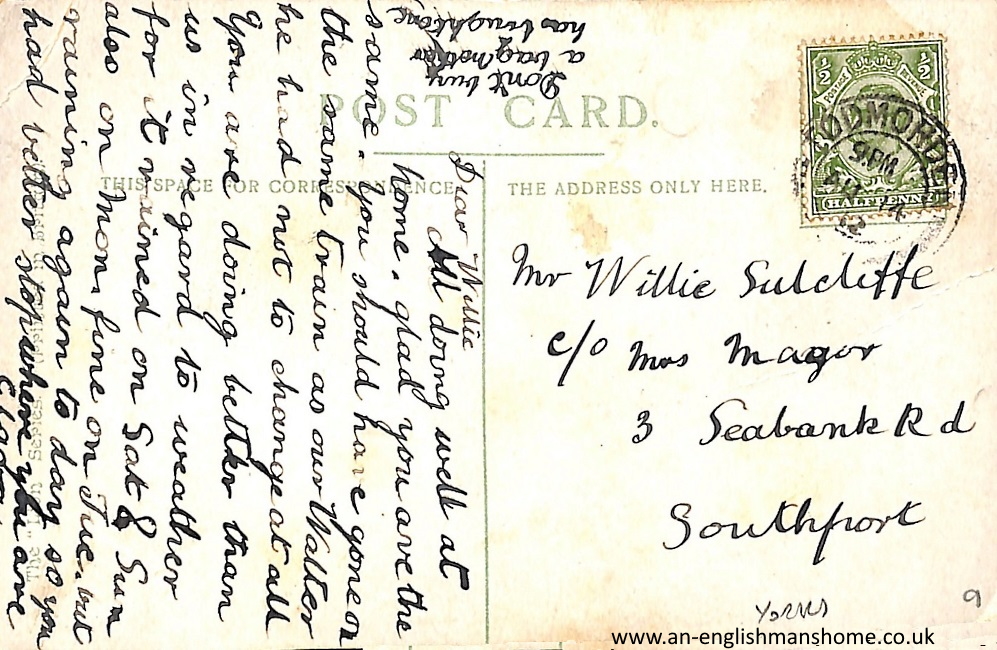 POST CARD.
THIS SPACE FOR CORRESPONDENCE
THE ADDRESS ONLY HERE.
Dear Willie
All doing well at
home. glad you are the
same. You should have gone on
the same train as our Walter
he had not to change at all
You are doing better than
us in regard to weather
for it rained on Sat & Sun
also on Mon. fine on Tue. but
raining again to day so you
had better stop where you are
Don't buy
a bag mother
has brought one
½ ½
HALFPENNY
TODMORDEN
9.PM
Mr Willie Sutcliffe
c/o Mrs Magor
3 Seabank Rd
Southport
Yorks
9
www.an-englishmanshome.co.uk